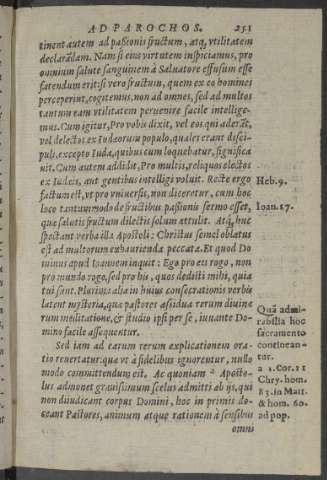 AD PAROCHOS. 251
tinent autem ad passionis fructum, atq, vtilitatem
declarãdam. Nam si eius virtutem inspiciamus, pro
omnium salute sanguinem à Saluatore effusum esse
fatendum erit: si vero fructum, quem ex eo homines
perceperint, cogitemus, non ad omnes, sed ad multos
tantum eam vtilitatem peruenire facile intellige-
mus. Cum igitur, Pro vobis dixit, vel eos qui aderāt,
vel delectos ex Iudæorum populo, quales erant disci-
puli, excepto Iuda, quibus cum loquebatur, significa
uit. Cum autem addidit, Pro multis, reliquos electos
ex Iudæis, aut gentibus intelligi voluit. Recte ergo
factum est, vt pro vniuersis, non diceretur, cum hoc
loco tantummodo de fructibus passionis sermo esset,
quæ salutis fructum dilectis solum attulit. Atq, huc
spectant verba illa Apostoli: Christus semel oblatus
est ad multorum exhaurienda peccata. Et quod Do
minus apud Ioannem inquit: Ego pro eis rogo, non
pro mundo rogo, sed pro his, quos dedisti mihi, quia
tui sunt. Plurima alia in huius consecrationis verbis
latent mysteria, quæ pastores assidua rerum diuina
rum meditatione, & studio ipsi per se, iuuante Do-
mino facile assequentur.
Sed iam ad earum rerum explicationem ora-
tio reuertatur: quæ vt à fidelibus ignorentur, nullo
modo committendum est. Ac quoniam a Aposto-
lus admonet grauissimum scelus admitti ab ijs, qui
non diiudicant corpus Domini, hoc in primis do-
ceant Pastores, animum atque rationem à sensibus
omni
Heb. 9.
Ioan. 17.
Quã admi-
rabilia hoc
sacramento
continean-
tur.
a 1. Cor. 11
Chry. hom.
83. in Matt.
& hom. 60.
ad pop.